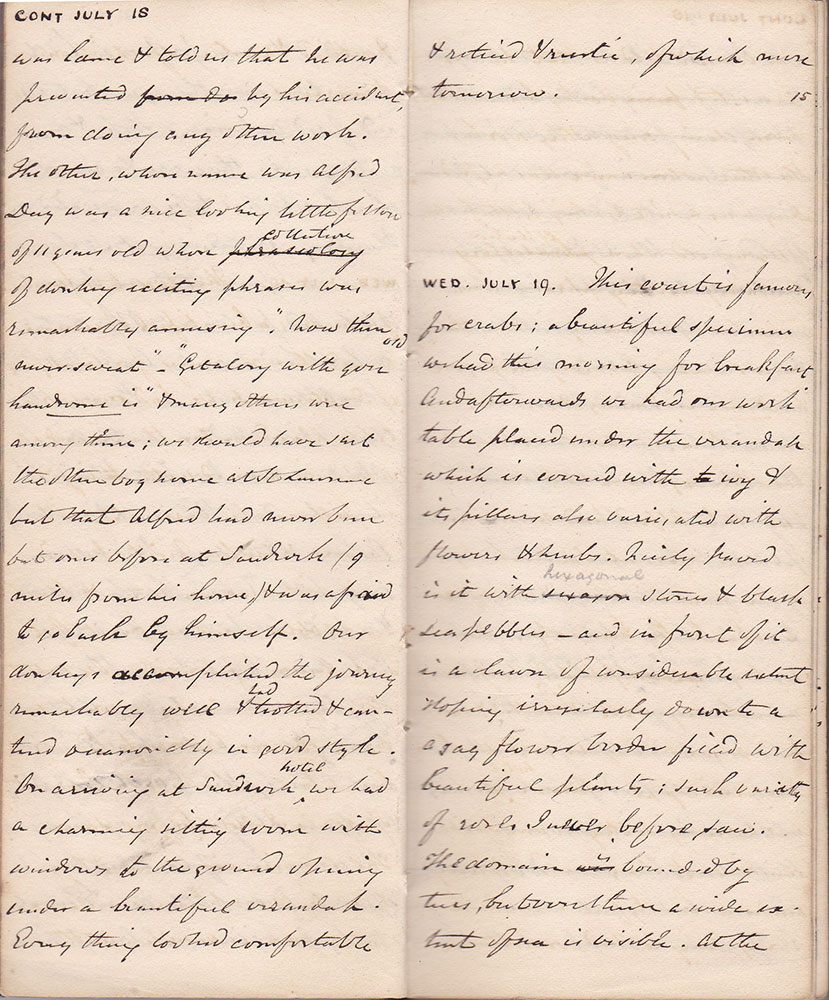 CONT JULY 18
was lame & told us that he was
prevented from do by his accident,
from doing any other work.
The other, whose name was Alfred
Day was a nice looking little fellow
collection
of 11 years old whose phraseology
of donkey exciting phrases was
remarkably amusing. "Now then old
never-sweat" - "Get along with you
handsome is" & many others were
among them; we should have sent
the other boy home at St Laurence
but that Alfred had never been
but once before at Sandwich (9
miles from his home) & was afraid
to go back by himself. Our
donkeys accomplished the journey
remarkably well & had trotted & can-
tered occasionally in good style.
hotel
On arriving at Sandwich we had
a charming sitting room with
windows to the ground opening
under a beautiful verandah.
Every thing looked comfortable
& retired & rustic, of which more
tomorrow.
15
WED. JULY 19. This coast is famous
for crabs; a beautiful specimen
we had this morning for breakfast
And afterwards we had our work
table placed under the verandah
which is covered with ivy &
its pillars also variegated with
flowers & shrubs. Nicely paved
hexagonal
is it with sexagon stones & black
sea pebbles - and in front of it
is a lawn of considerable extent
sloping irregularly down to a
a gay flower border filled with
beautiful plants; such variety
of roses I never before saw.
The domain is bounded by
trees, but over them a wide ex-
tent of sea is visible. At the